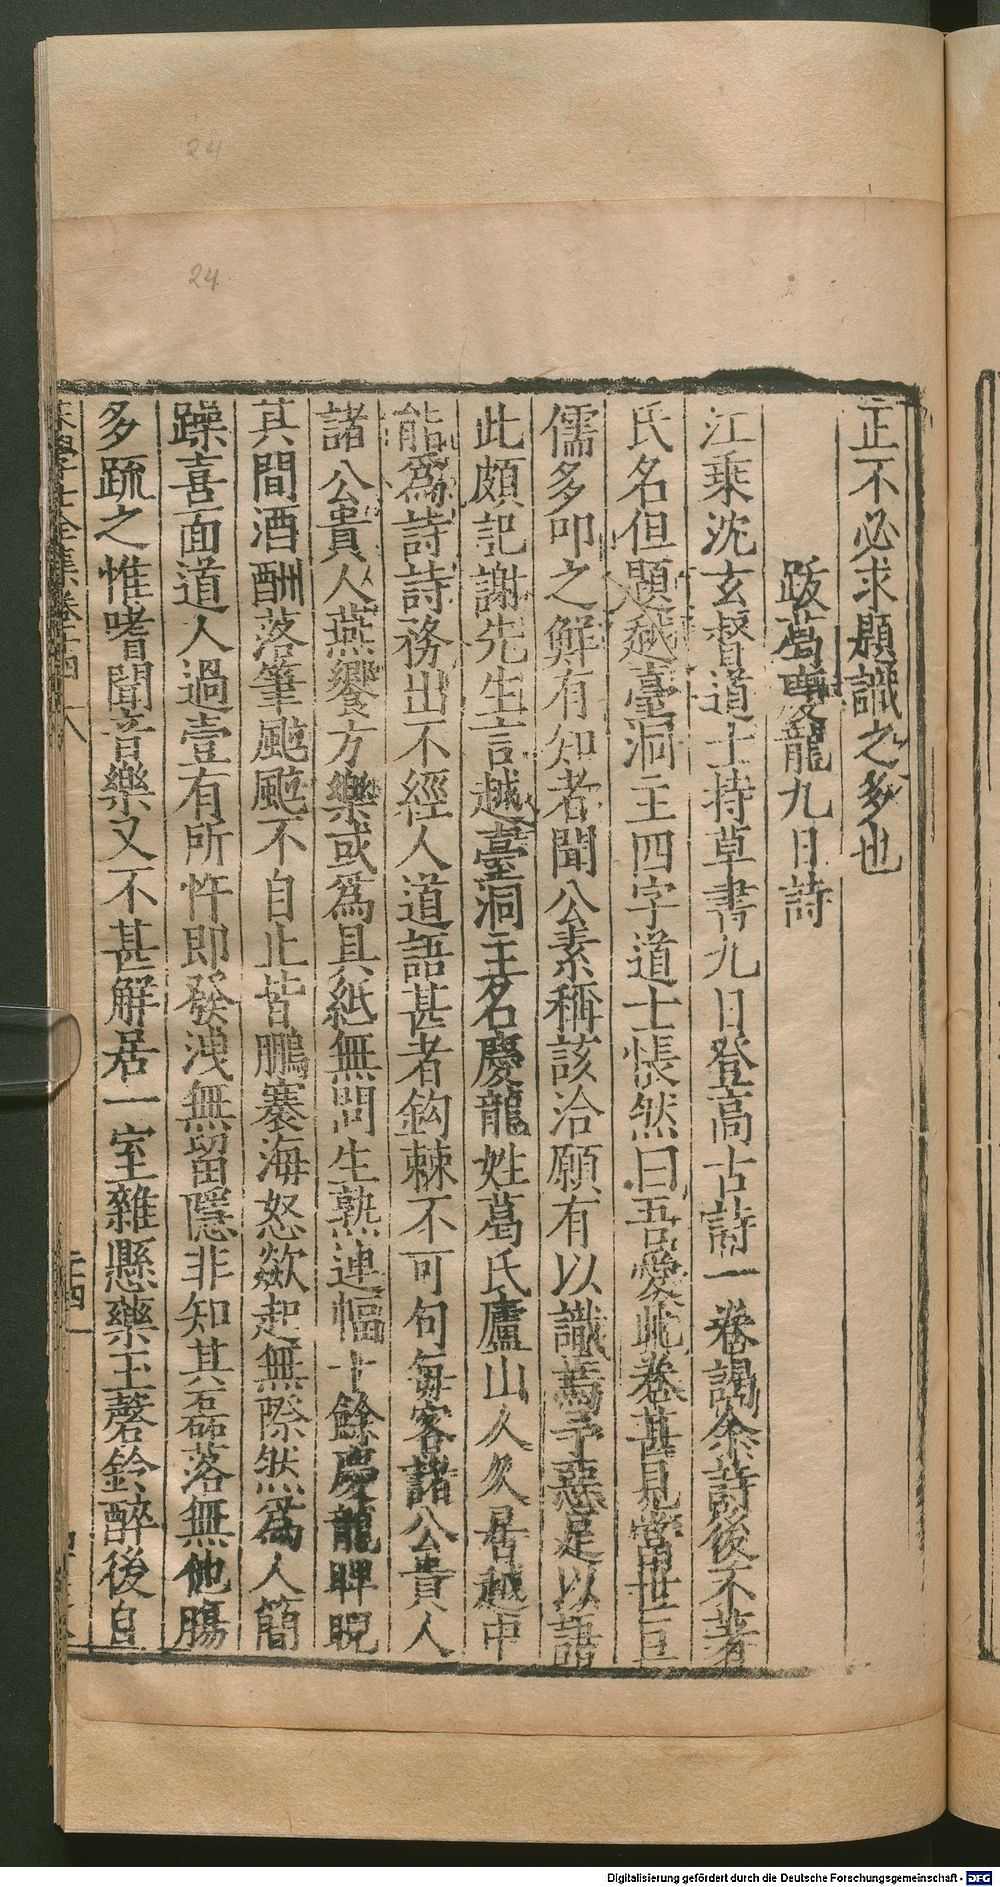 正不必求題識之多也
跋葛慶龍九日詩
江乗沈玄督道士持草書九日登高古詩一卷謁余詩後不著
氏名但題越臺洞主四字道士悵然曰吾愛此卷甚見當世巨
儒多叩之鮮有知者聞公素稱該洽願有以識焉予惡足以語
此頗記謝先生言越臺洞主名慶龍姓葛氏廬山人久居越中
能爲詩詩務出不經人道語甚者鈎棘不可句每客諸公貴人
諸公貴人燕饗方樂或爲具紙無問生熟連幅十餘慶龍睥睨
其間酒酬落筆颰颰不自止皆鵬騫海怒歘起無際然爲人簡
躁喜面道人過壹有所忤即發洩無留隱非知其磊落無他膓
多䟽之惟嗜聞音樂又不甚解居一室雜懸藥玉磬鈴醉後自
宋學士全集卷十四 八
二十四
24
24
Digitalisierung gefördert durch die Deutsche Forschungsgemeinschaft - DFG